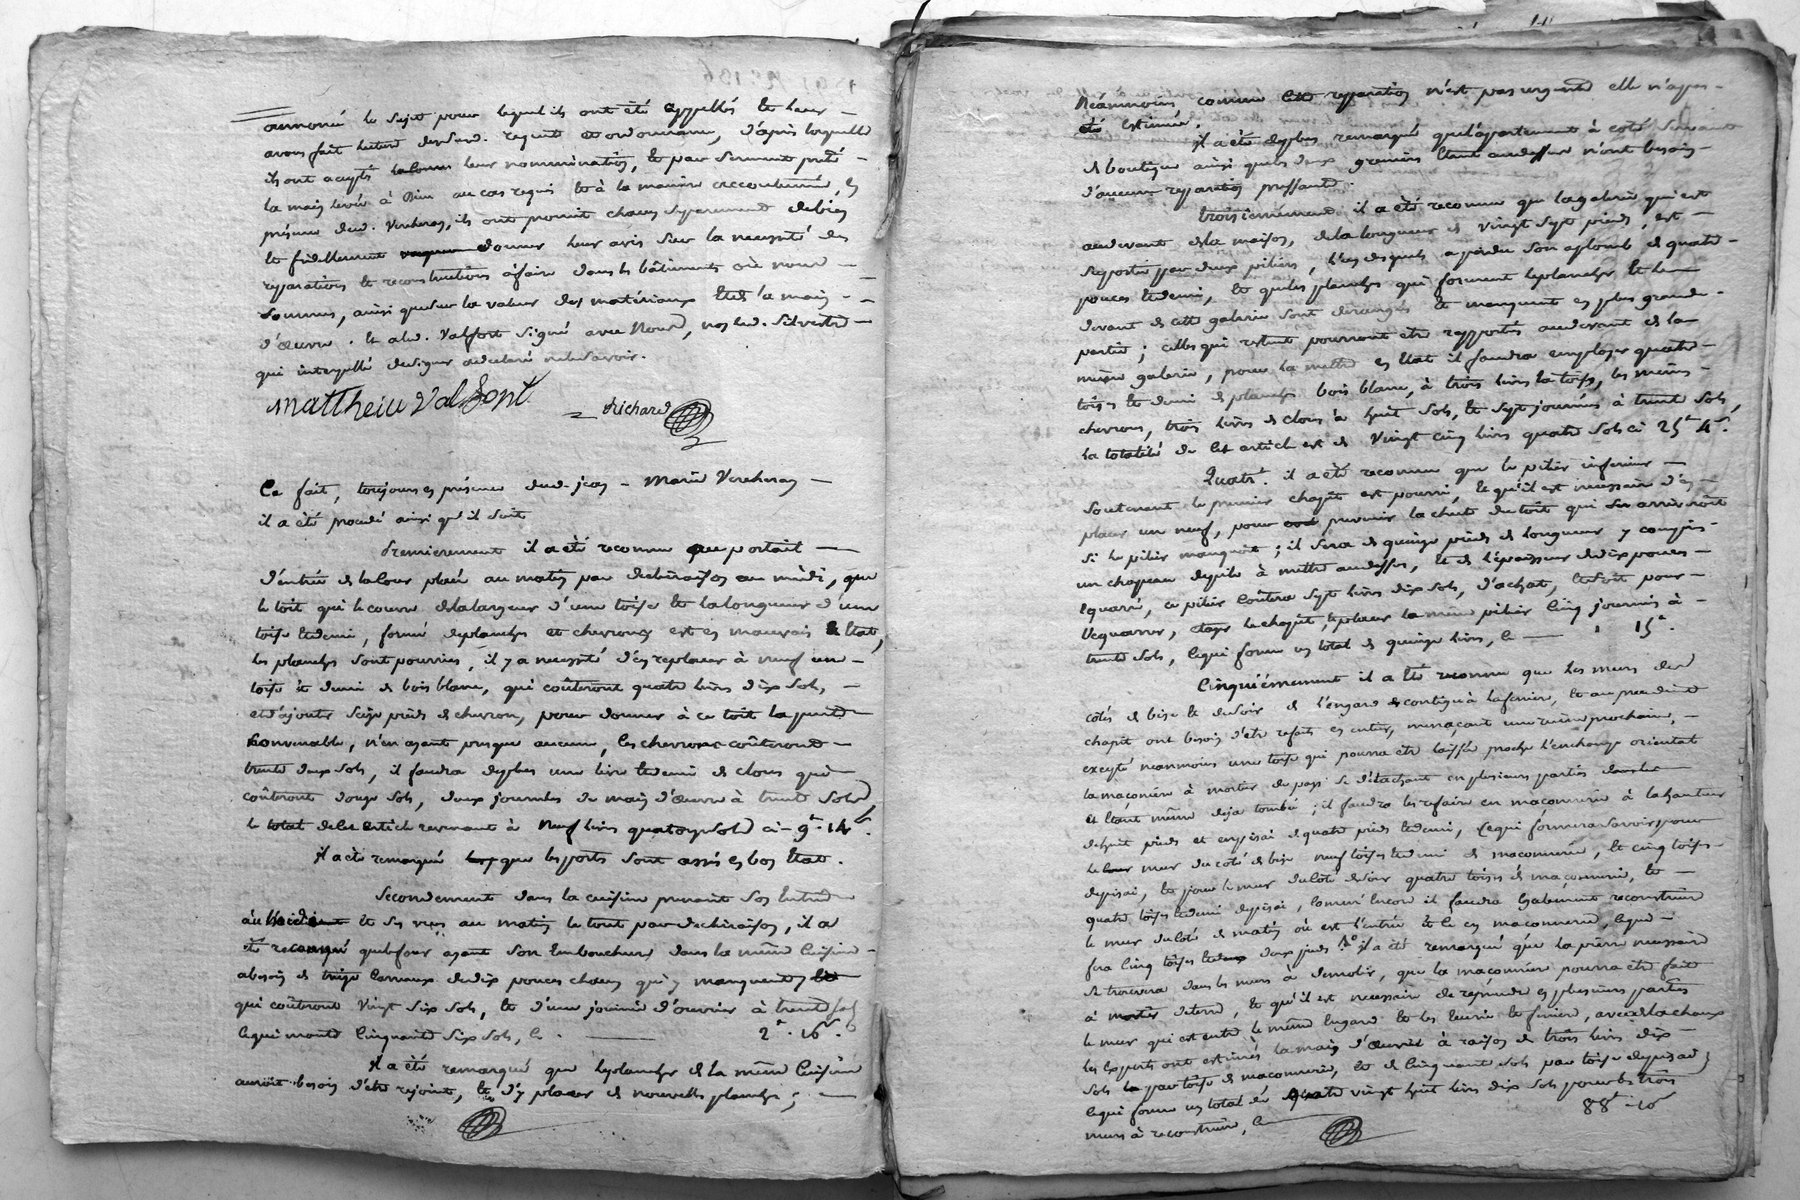 annoncé le sujet pour lequel ils ont été appellés et leur
avons fait lecture desd. requete et ordonnance, d'après laquelle
ils ont accepté leur nomination, et par serment prêté
la main levée à Dieu au cas requis et à la manière accoutumée, en
présence dud. Vercheras, ils ont promit chacun séparement de bien
et fidellement donner leur avis sur la necessité des
reparations et reconstructions à faire dans les bâtiments où nous
sommes, ainsi que sur la valeur des matériaux et de la main
d'œuvre. Et a led. Valfort signé avec Nous, non led. Silvestre
qui interpellé de signer a déclaré ne le savoir.
Mattheiu Valfont
Richard
Ce fait, toujours en présence dud. jean-Marie Vercheras
il a été procedé ainsi qu'il suit
Premierement il a été reconnu que portail
d'entrée de la Cour placé au matin par déclinaison au midi, que
le toit qui le couvre de la largeur d'une toise et la longueur d'une
toise et demi, formé de planches et chevrons est en mauvais Etat,
les planches sont pourries, il y a necessité d'en replacer à neuf une
toise et demi de bois blanc, qui coûteront quatre livres dix sols,
et d'ajouter seize pieds de chevron, pour donner à ce toit la pente
convenable, n'en ayant presque aucune, les chevrons coûteront
trente deux sols, il faudra de plus une livre et demi de clous qui
coûteront douze sols, deux journées de main d'œuvre à trente sols
le total de cet article revenant à neuf livres quatorze sols ci 9# 14s.
Il a été remarqué que les portes sont assés en bon Etat.
Secondement dans la cuisine prenant son entrée
au et ses vues au matin le tout par declinaison, il a
été reconnu que le four ayant son embouchure dans la même Cuisine
a besoin de treize carreaux de dix pouces chacun qui y manquent
qui coûteront vingt six sols, et d'une journée d'ouvrier à trente sols
ce qui monte cinquante six sols, Ci 2# 16s.
Il a été remarqué que le plancher de la même Cuisine
auroit besoin d'être rejoint, et d'y placer de nouvelles planches;
Néanmoins, comme cette reparation n'est pas urgente elle n'a pas
été estimée.
Il a été de plus remarqué que l'appartement à coté servant
de boutique ainsi que les deux greniers étant au dessus n'ont besoin
d'aucune reparation pressante.
Troisiemement il a été reconnu que la galerie qui est
au devant de la maison, de la longueur de vingt sept pieds, est
supportée par deux piliers, l'un desquels a perdu son aplomb de quatre
pouces et demi, et que les planches qui forment le plancher et le
devant de cette galerie sont dérangés et manquent en plus grande
partie; celles qui restent pourront être rapportés au devant de la
même galerie, pour la mettre en Etat il faudra employer quatre
toises et demi de planches bois blanc, à trois livres la toise, les mêmes
chevrons, trois livres de clous à huit sols, et sept journées à trente sols,
la totalité de cet article est de vingt cinq livres quatre sols ci 25# 4s.
Quatr.t il a été reconnu que le pilier inferieur
soutenant le premier chapit est pourri, et qu'il est necessaire d'en
placer un neuf, pour prevenir la chute du toit qui en arriveroit
si le pilier manquoit; il sera de quinze pieds de longueur y compris
un chapeau de pile à mettre au dessus, et de l'épaisseur de dix pouces
equarri, ce pilier coûtera sept livres dix sols, d'achat, et soit pour
l'equarrir, etayer le chapit, et placer le même pilier cinq journées à
trente sols, ce qui forme un total de quinze livres, Ci 15#.
Cinquiémement il a été reconnu que les murs des
côtés de bise et du soir de l'engard contigu à la feniere, et au precedent
chapit ont besoin d'être refaits en entier, menaçant une ruine prochaine,
excepté neanmoins une toise qui pourra être laissée proche l'enchange oriental
la maçonnerie à mortier du pays se détachant en plusieurs parties dans le
et étant même deja tombée; il faudra les refaire en maçonnerie à la hauteur
de huit pieds et en pisai de quatre pieds et demi, ce qui formera savoir pour
le mur du côté de bise neuf toises et demi de maçonnerie, et cinq toises
de pisai, et pour le mur du côté du soir quatre toises de maçonnerie, et
quatre toises et demi de pisai, comme encore il faudra également reconstruire
le mur du côté de matin où est l'entrée et ce en maçonnerie, ce qui
fera cinq toises deux pieds. il a été remarqué que la pierre necessaire
se trouvera dans les murs à demolir, que la maçonnerie pourra être faite
à mortier de terre, et qu'il est necessaire de reprendre en plusieurs parties
le mur qui est entre le même engard et les écurie et feniere, avec de la chaux
les experts ont estimés la main d'œuvre à raison de trois livres dix
sols par toise de maçonnerie, et de cinquante sols par toise de pisai;
ce qui forme un total de quatre vingt huit livres dix sols pour les trois
murs à reconstruire, Ci 88# 10s